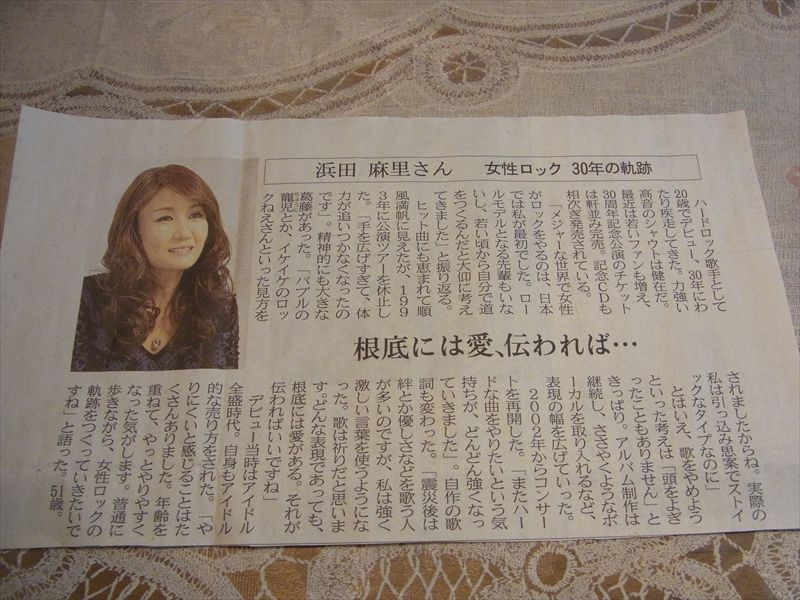 浜田 麻里さん 女性ロック 30年の軌跡
ハードロック歌手として
20歳でデビュー、30年にわ
たり疾走してきた。力強い
高音のシャウトは健在だ。
最近は若いファンも増え、
30周年記念公演のチケット
は軒並み完売。記念CDも
相次ぎ発売されている。
「メジャーな世界で女性
がロックをやるのは、日本
では私が最初でした。ロー
ルモデルとなる先輩もいな
いし、若い頃から自分で道
をつくるんだと大仰に考え
てきました」と振り返る。
ヒット曲にも恵まれて順
風満帆に見えたが、199
3年に公演ツアーを休止し
た。「手を広げすぎて、体
力が追いつかなくなったの
です」。精神的にも大きな
葛藤があった。「バブルの
寵児とか、イケイケのロッ
クねえさんといった見方を
根底には愛、伝われば…
されましたからね。実際の
私は引っ込み思案でストイ
ックなタイプなのに」
とはいえ、歌をやめよう
といった考えは「頭をよぎ
ったこともありません」と
きっぱり。アルバム制作は
継続し、ささやくようなボ
ーカルを取り入れるなど、
表現の幅を広げていった。
2002年からコンサー
トを再開した。「またハー
ドな曲をやりたいという気
持ちが、どんどん強くなっ
ていきました」。自作の歌
詞も変わった。「震災後は
絆とか優しさなどを歌う人
が多いのですが、私は強く
激しい言葉を使うようにな
った。歌は祈りだと思いま
す。どんな表現であっても、
根底には愛がある。それが
伝わればいいですね」
デビュー当時はアイドル
全盛時代。自身もアイドル
的な売り方をされた。「や
りにくいと感じることはた
くさんありました。年齢を
重ねて、やっとやりやすく
なった気がします。普通に
歩きながら、女性ロックの
軌跡をつくっていきたいで
すね」と語った。51歳。